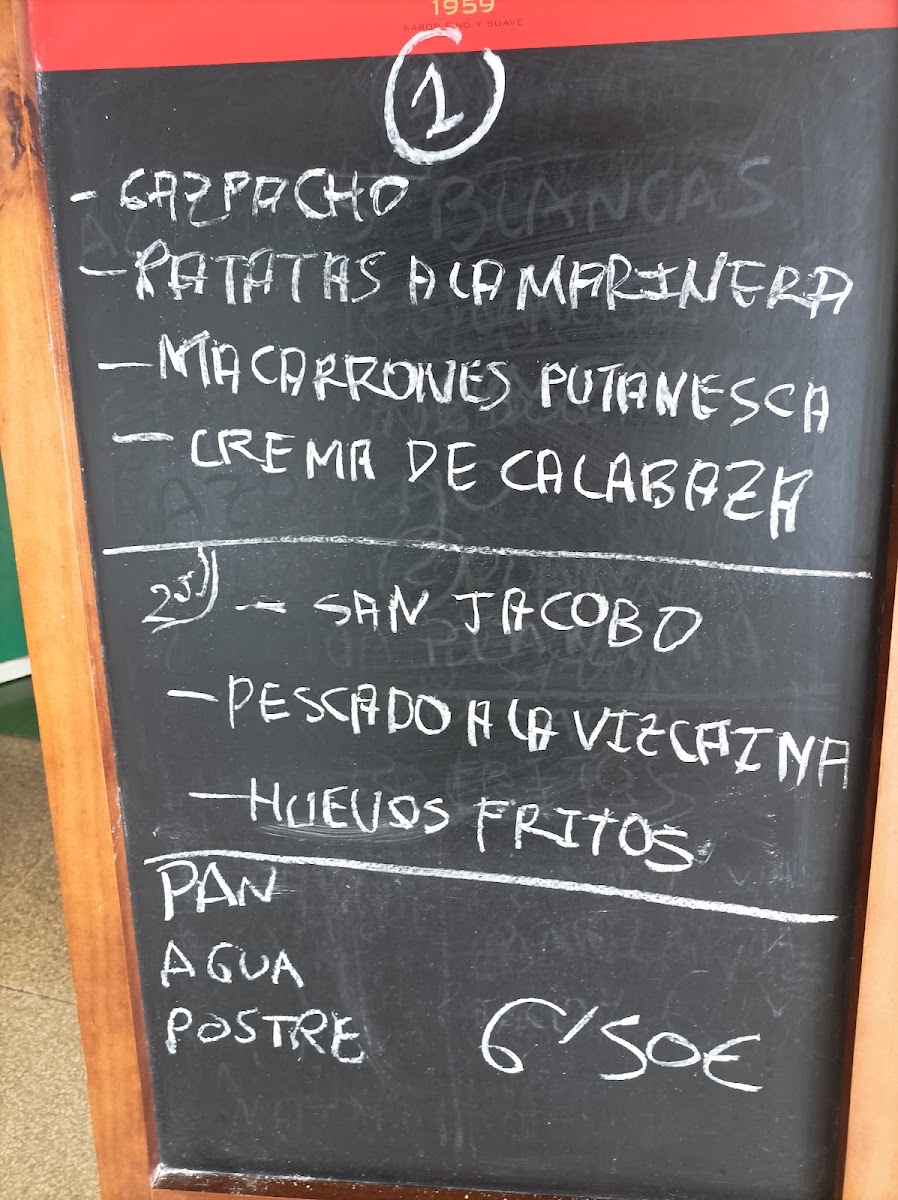 1959
SABOR FINO Y SUAVE
1
- GAZPACHO
- PATATAS A LA MARINERA
- MACARRONES PUTANESCA
- CREMA DE CALABAZA
2º - SAN JACOBO
- PESCADO A LA VIZCAINA
- HUEVOS FRITOS
PAN
AGUA
POSTRE 6'50€